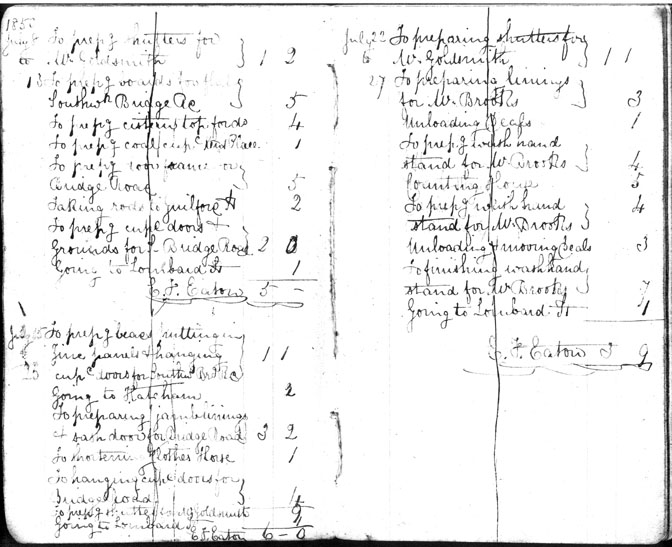 185
July 8 To prepg shutters for
to Mr Goldsmith 1 2
13 To prepg boards for
Southwk Bridge Rd 5
To prepg cistern top fords 4
To prepg coal cupd 1
To prepg door frame
Bridge Road 5
Taking rods to Guilford St 2
To prepg cupd doors &
Grounds for S Bridge Road 2 0
Going to Lombard St 1
E. F. Eatow 5 -
July 15 To prepg beads putting in
Zinc panels & hanging 1 1
cupd doors for Southwk Bdg Rd
Going to Hatcham 2
To preparing jamb linings
& sash door for Bridge Road 3 2
To shortening Clothes Horse 1
To hanging cupd doors for
Bridge Road 4
To prepg shutters Mr Goldsmith 9
Going to Lombard St
E F Eatow 6 - 0
July 22 To preparing shutters for
to Mr Goldsmith 1 1
27 To preparing linings
for Mr Brooks 3
Unloading Deals 1
To prepg wash hand
stand for Mr Brooks 4
Counting House 5
To prepg wash hand 4
stand for Mr Brooks
Unloading & moving Deals 3
To finishing wash hand
stand for Mr Brooks 7
Going to Lombard St 1
E. F. Eatow 3 9